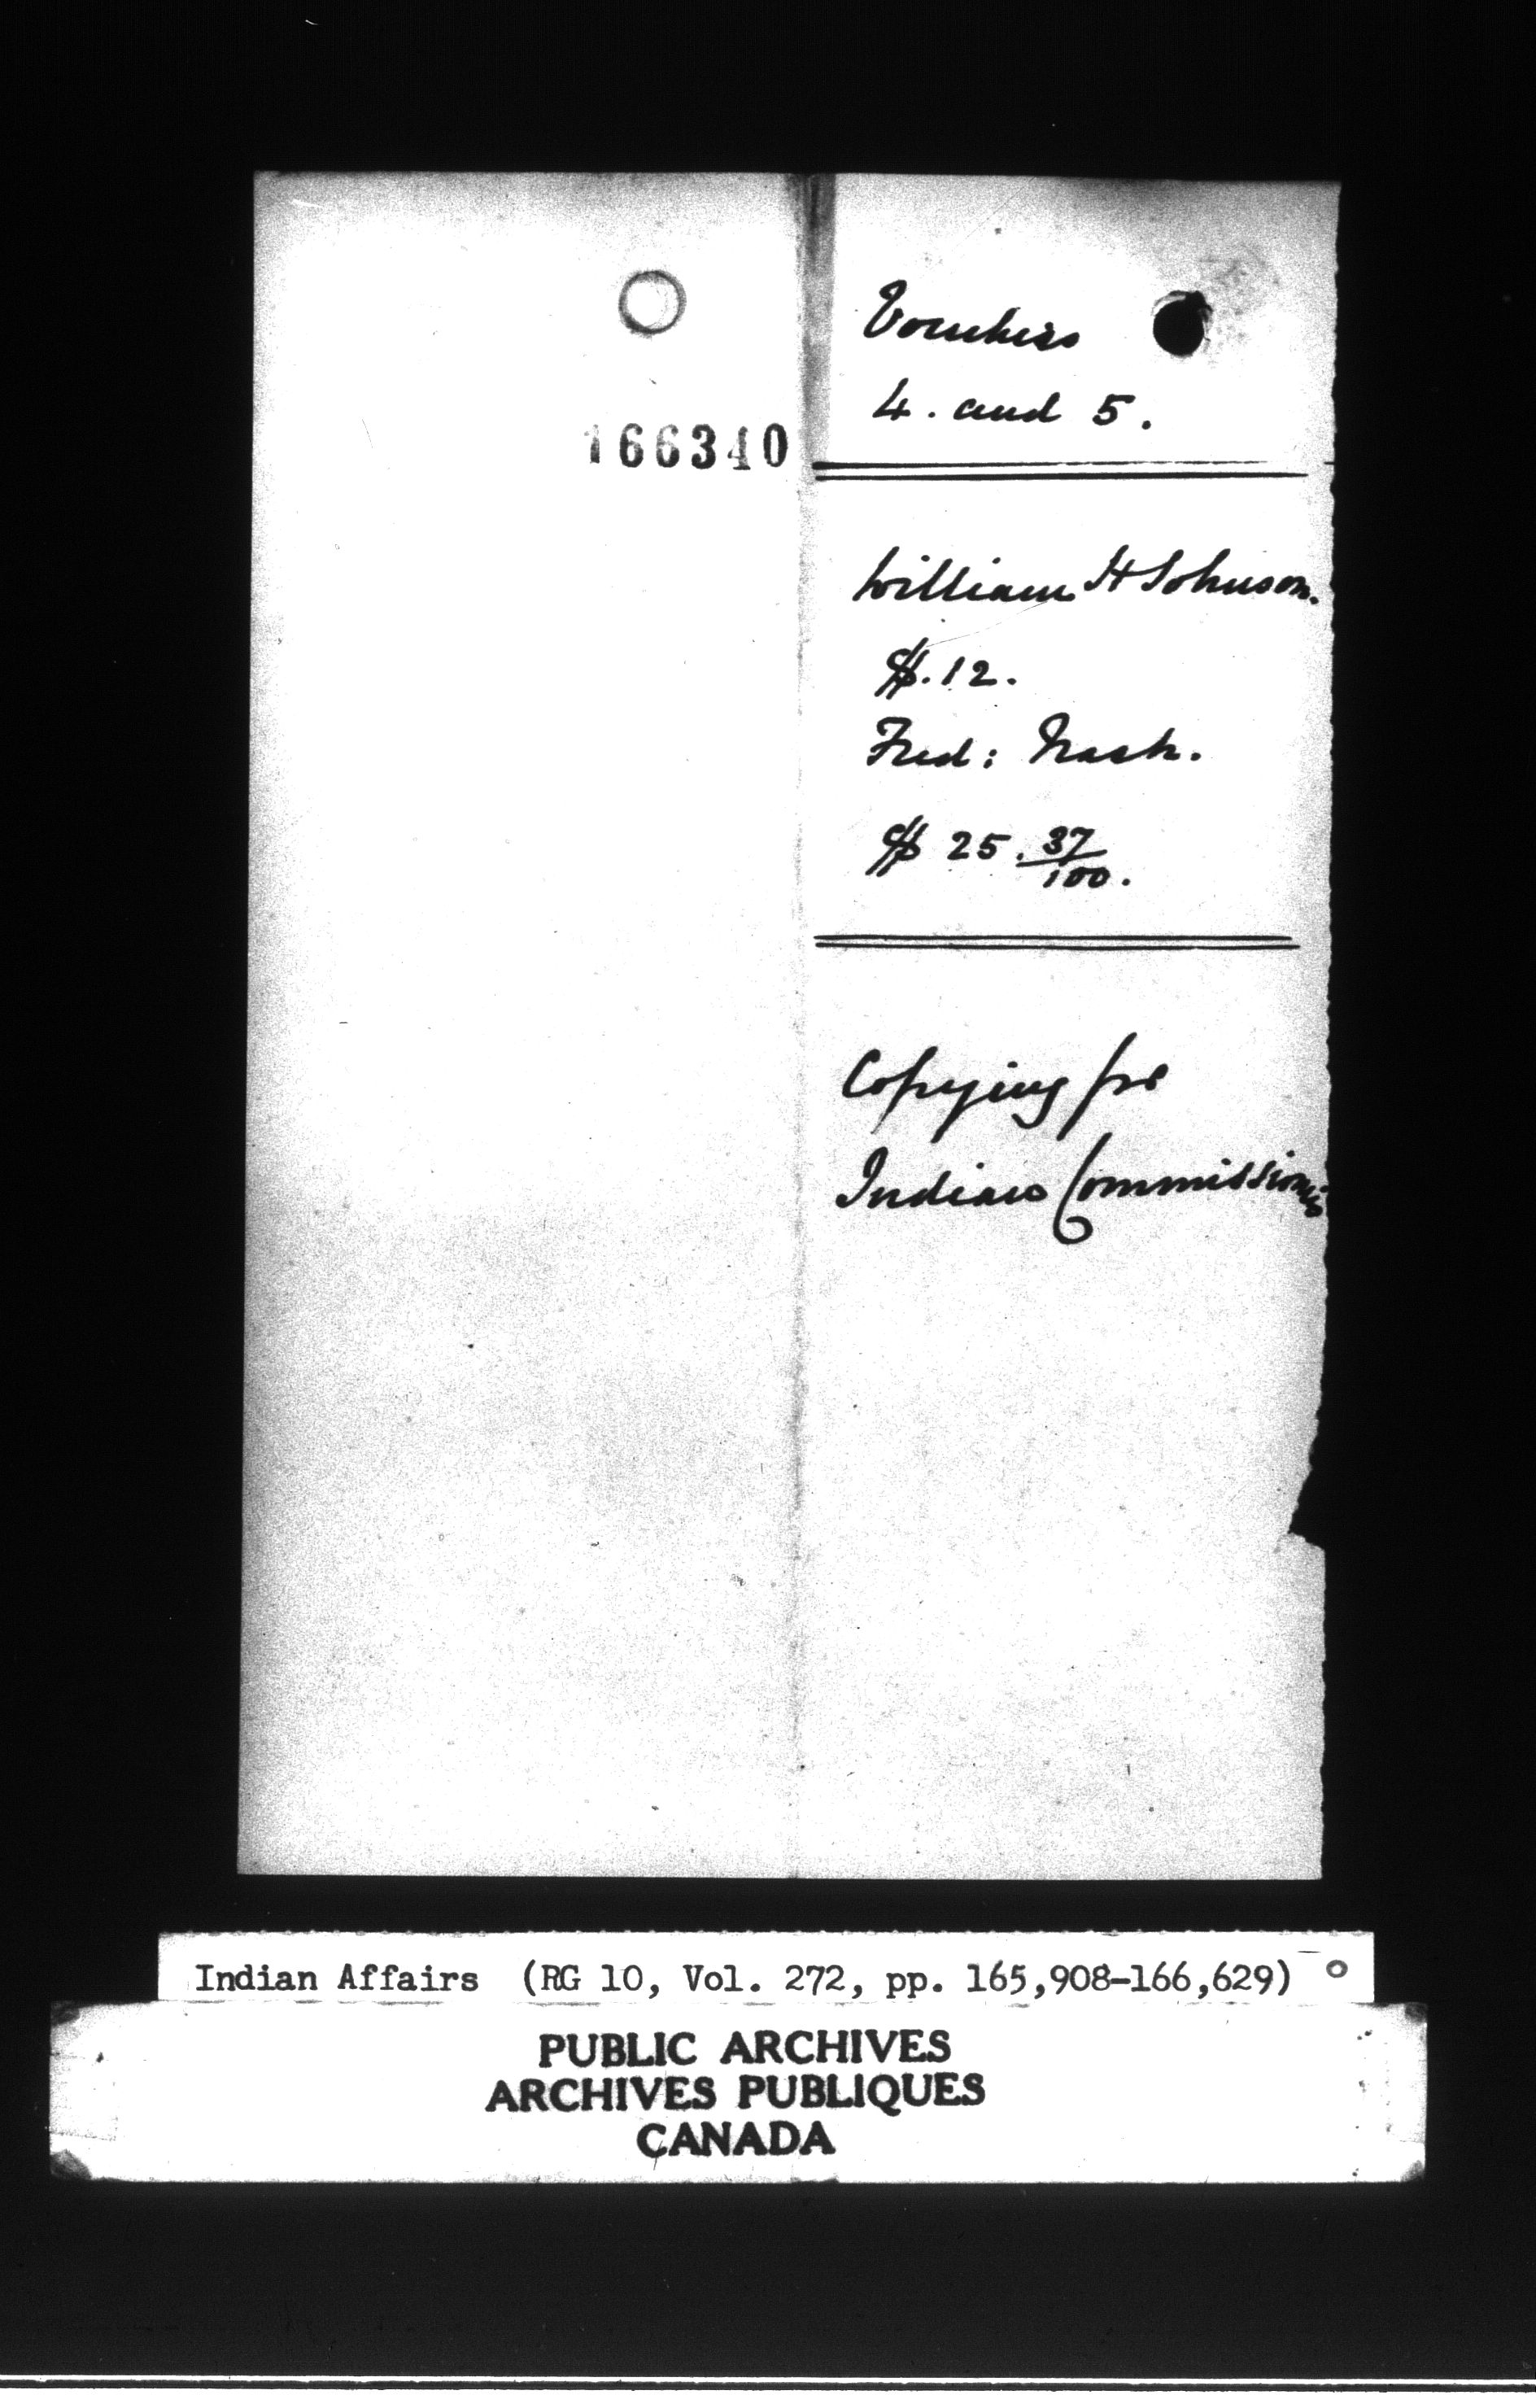 166340
Vouchers
4. and 5.
William H Johnson.
$.12.
Fred: Nash.
$ 25. 37/100.
Copying for
Indian Commission
Indian Affairs (RG 10, Vol. 272, pp. 165,908-166,629)
PUBLIC ARCHIVES
ARCHIVES PUBLIQUES
CANADA